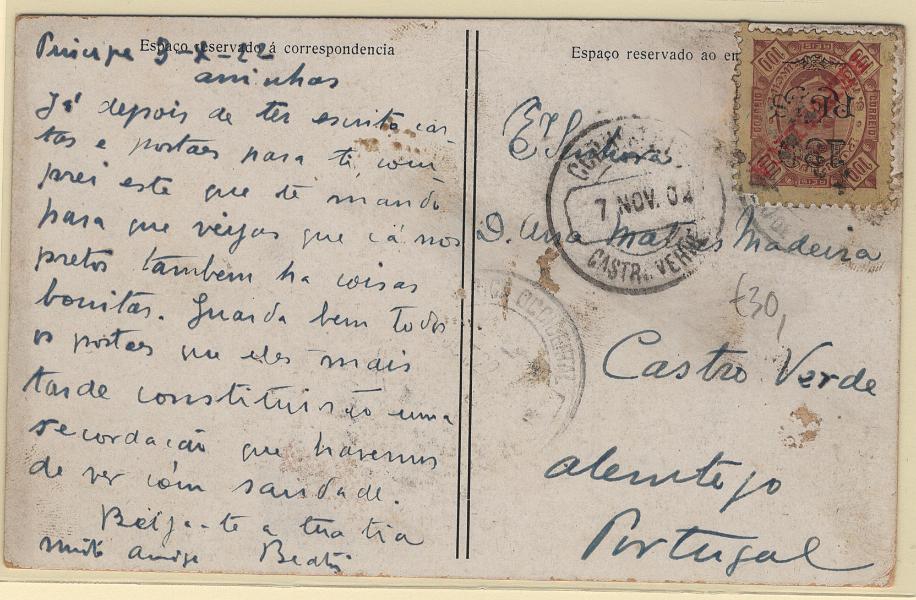 Espaço reservado á correspondencia
Principe 3-X-22
aninhas
Já depois de ter escrito car
tas e postaes para ti, com
prei este que te mando
para que vejas que cá nos
pretos tambem ha coisas
bonitas. Guarda bem todos
os postaes que eles mais
tarde constituirão uma
recordação que havemos
de ver com saudade.
Beija-te a tua tia
muito amiga Beatriz
Espaço reservado ao en
7 NOV. 02
CASTRO VERDE
Exª Senhora
D. Ana Matos Madeira
£30,
Castro Verde
alemtejo
Portugal
100
100
CORREIO
RÉIS